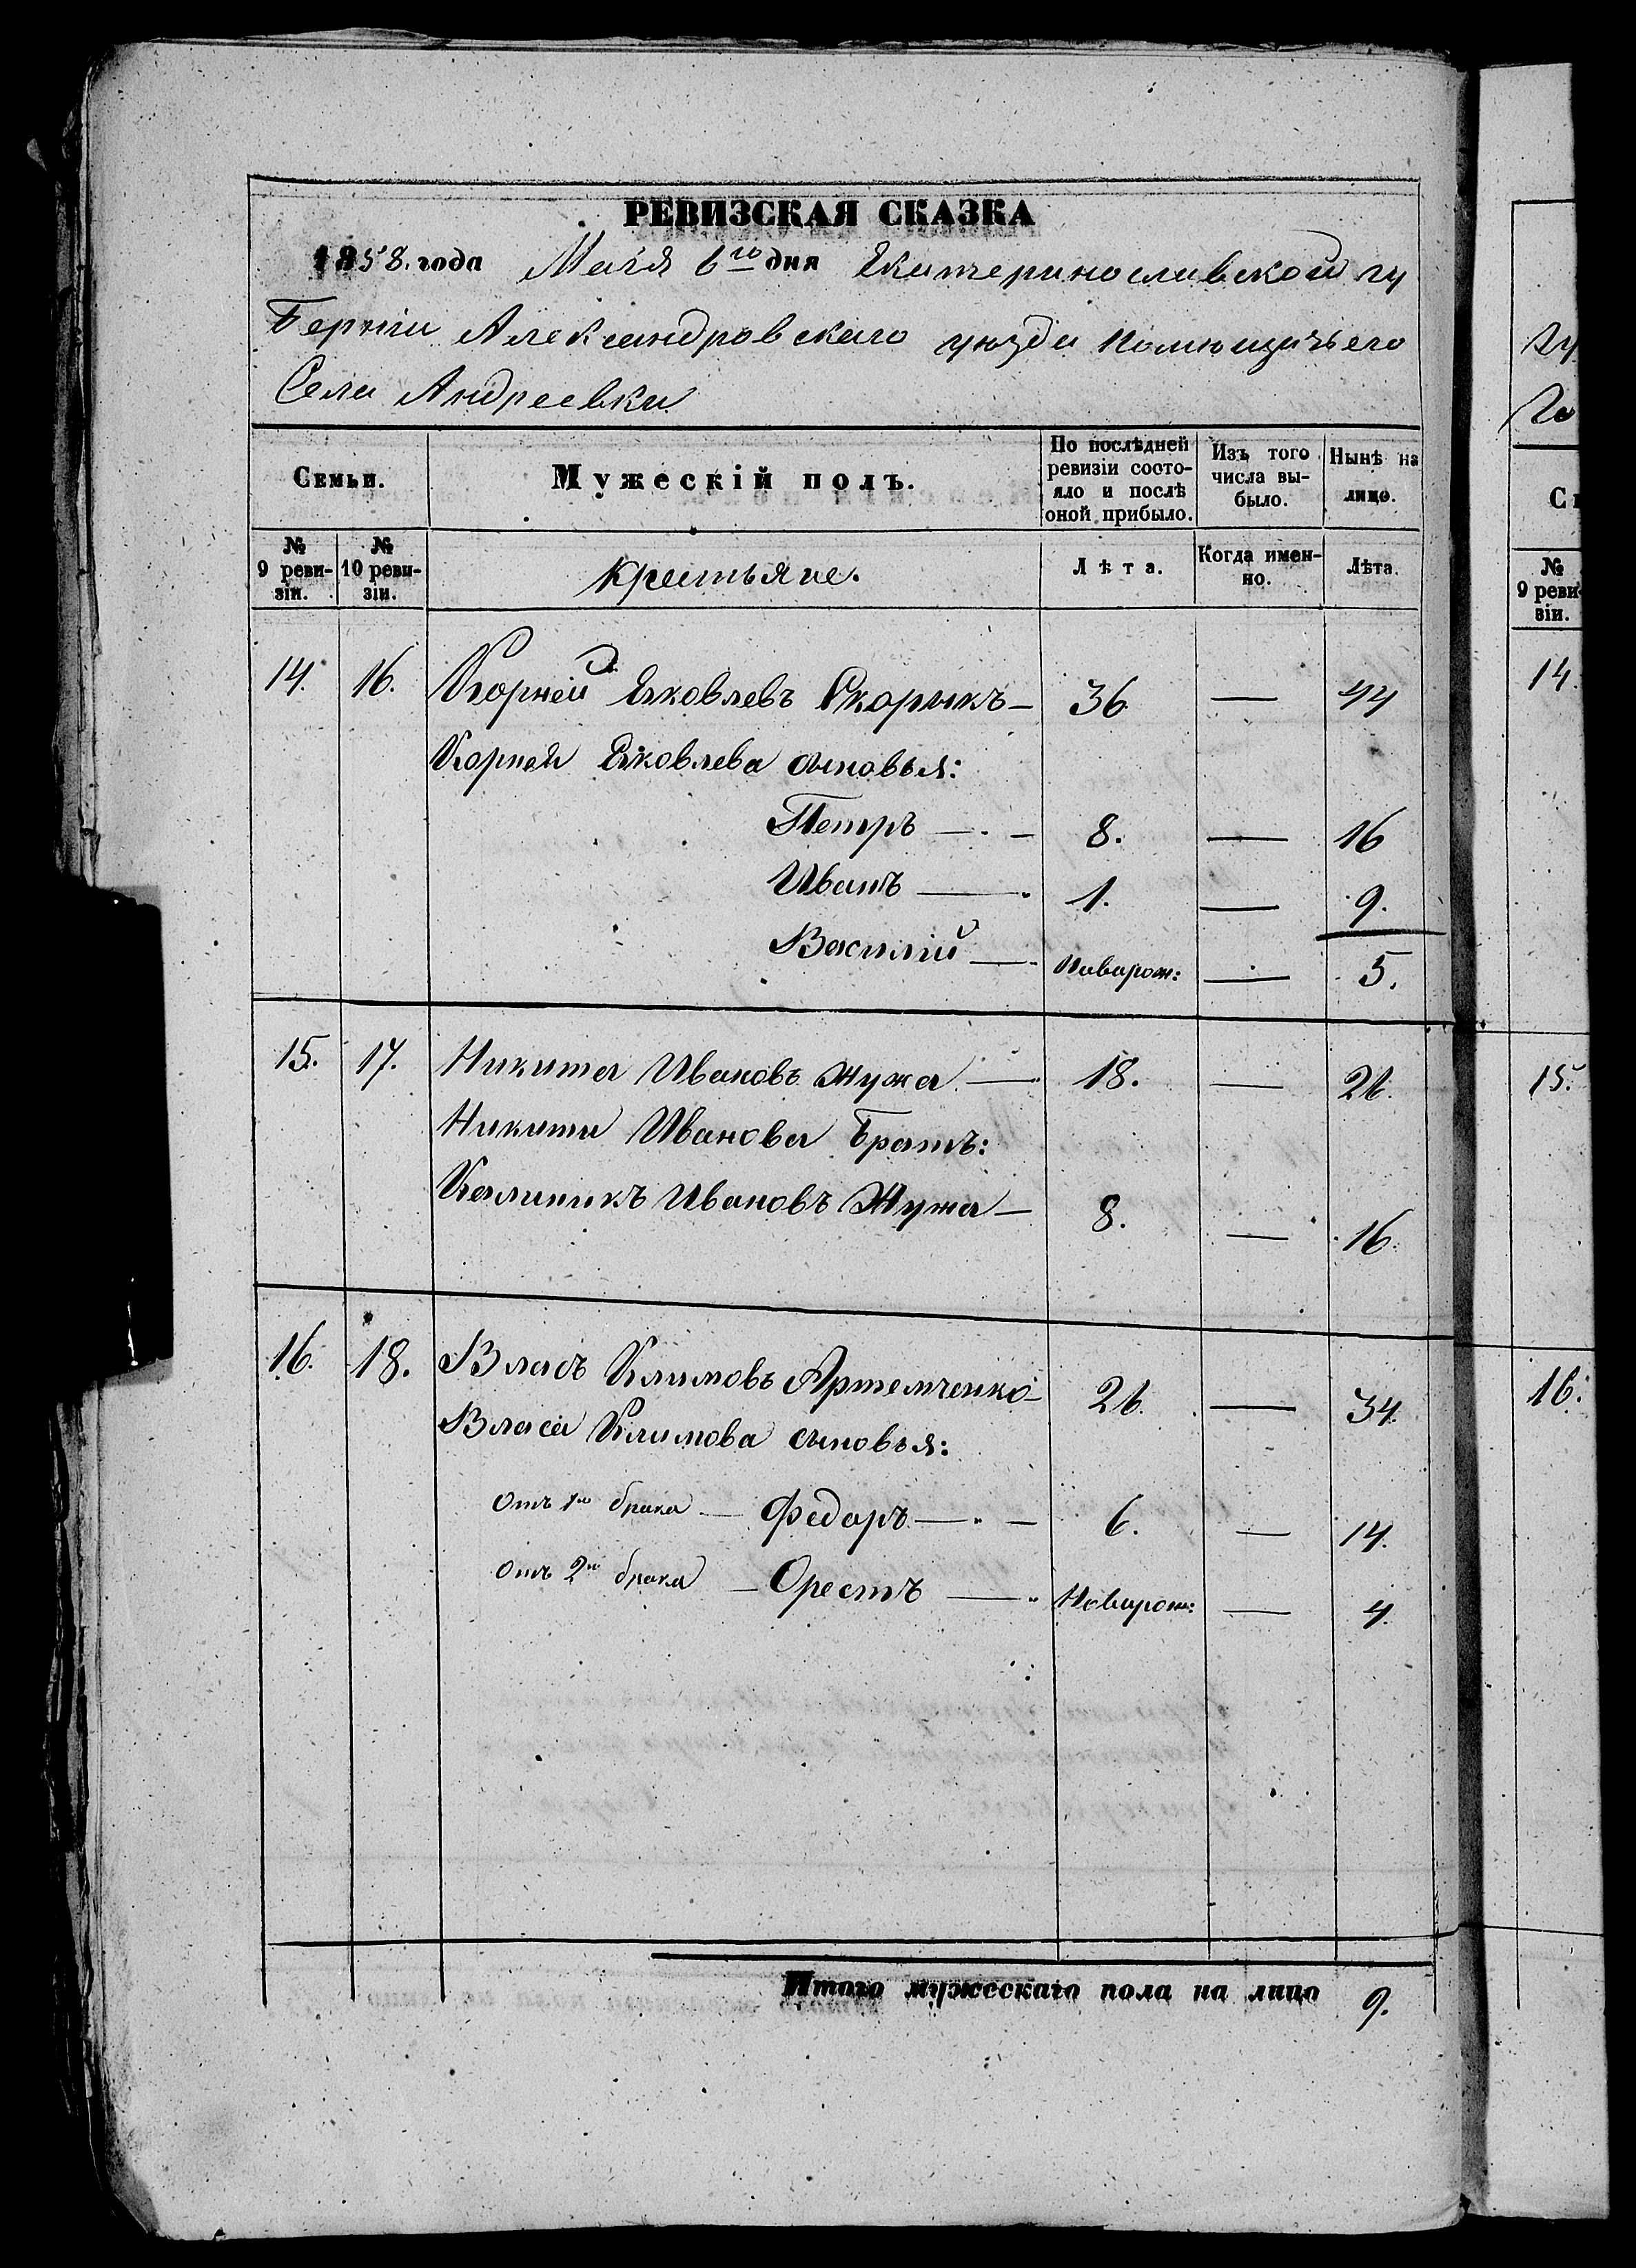 РЕВИЗСКАЯ СКАЗКА
1858. года Маія 6го дня Екатеринославской гу
Берніи Александровскаго уѣзда помѣщичьего
Села Андреевки
Семьи.
Мужескій полъ.
По послѣдней ревизіи состояло и послѣ оной прибыло.
Изъ того числа выбыло.
Нынѣ на лицо.
№ 9 ревизіи.
№ 10 ревизіи.
Крестьяне.
Лѣта.
Когда именно.
Лѣта.
14. 16. Корней Яковлевъ Скорыкъ — 36 — 44
Корнея Яковлева сыновья:
Петръ — 8. — 16
Иванъ — 1. — 9.
Василій — Новорож: — 5.
15. 17. Никита Ивановъ Жужа — 18. — 26.
Никиты Иванова Братъ:
Калиникъ Ивановъ Жужа — 8. — 16.
16. 18. Власъ Климовъ Артемченко — 26. — 34.
Власа Климова сыновья:
Отъ 1го брака — Федоръ — 6. — 14.
Отъ 2го брака — Орестъ — Новорож: — 4.
Итого мужескаго пола на лицо 9.
гу
го
С
№
9 реви-
зіи.
14.
15.
16.